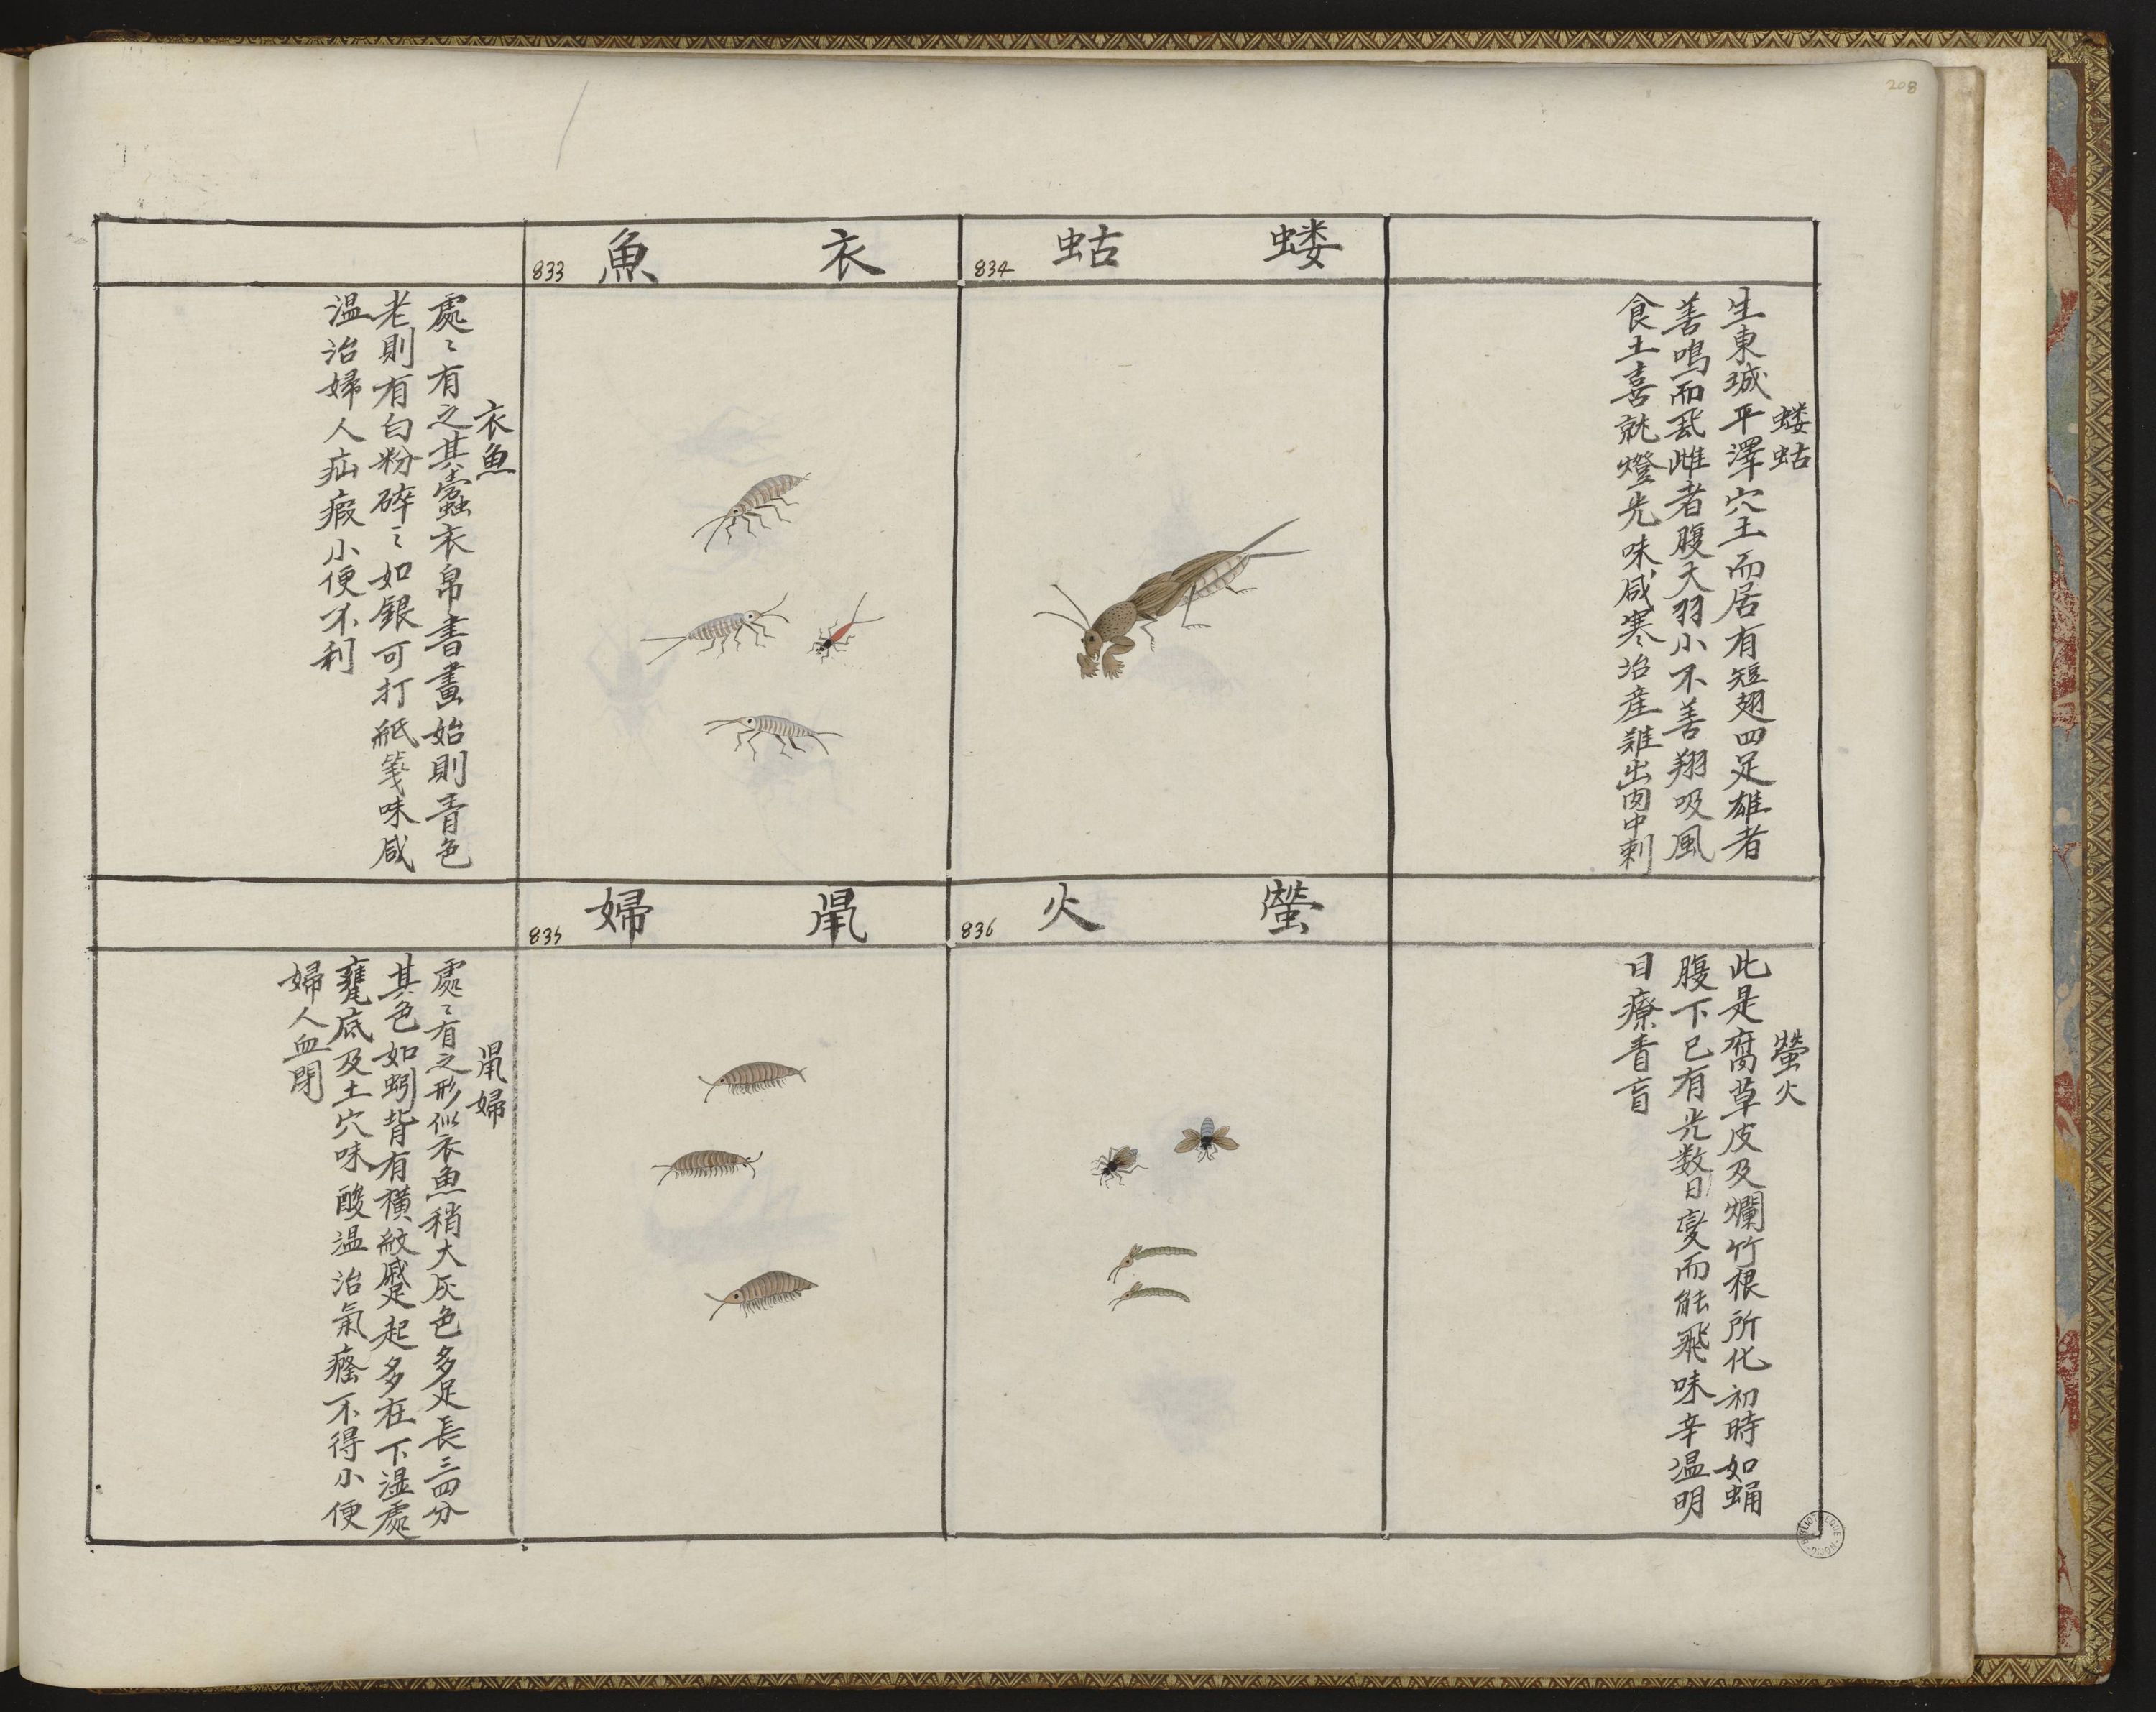 208
蝼蛄
834
衣魚
833
蝼蛄
生東城平澤穴土而居有短翅四足雄者
善鳴而飛雌者腹大羽小不善翔吸風
食土喜就燈光味咸寒治産難出肉中刺
衣魚
處〻有之其蠹衣帛書畫始則青色
老則有白粉碎〻如銀可打紙箋味咸
温治婦人疝瘕小便不利
螢火
836
鼠婦
835
螢火
此是腐草皮及爛竹根所化初時如蛹
腹下已有光数日變而能飛味辛温明
目療青盲
鼠婦
處〻有之形似衣魚稍大灰色多足長三四分
其色如蚓背有横紋蹙起多在下湿處
甕底及土穴味酸温治氣癃不得小便
婦人血閉
BIBLIOTHEQUE DIJON